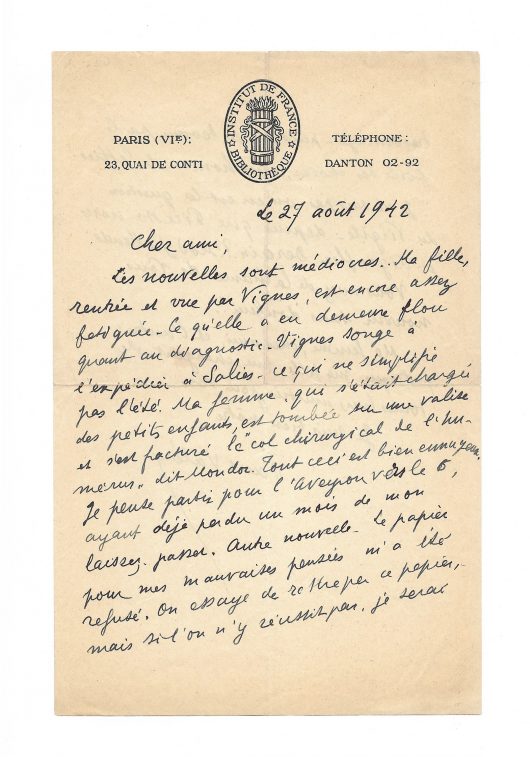 PARIS (VIE):
23, QUAI DE CONTI
INSTITUT DE FRANCE
BIBLIOTHÈQUE
TÉLÉPHONE:
DANTON 02-92
Le 27 août 1942
Cher ami,
Les nouvelles sont médiocres. Ma fille,
rentrée et vue par Vignes, est encore assez
fatiguée. Ce qu'elle a eu demeure flou
quant au diagnostic. Vignes songe à
l'expédier à Salies - ce qui ne simplifie
pas l'été. Ma femme, qui s'était chargée
des petits enfants, est tombée sur une valise
et s'est facturé le "col chirurgical de l'hu-
mérus" dit Mondor. Tout ceci est bien ennuyeux.
Je pense partir pour l'Aveyron vers le 6,
ayant déjà perdu un mois de mon
laissez-passer. Autre nouvelle - Le papier
pour mes mauvaises pensées m'a été
refusé. On essaye de rattraper ce papier,
mais si l'on n'y réussit pas, je serai